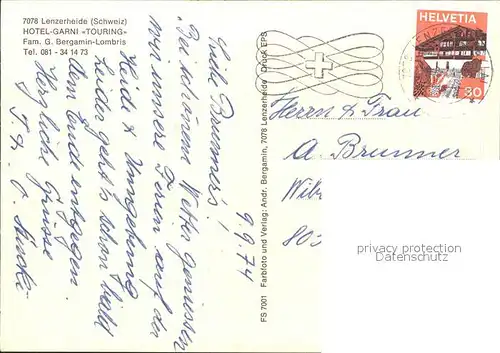 7078 Lenzerheide (Schweiz)
HOTEL-GARNI «TOURING»
Fam. G. Bergamin-Lombris
Tel. 081 - 34 14 73
9.9.74
Liebe Brunner's!
Bei schönem Wetter geniessen
wir unsere Ferien auf der
Heide & Umgebung
Leider geht's schon bald
dem Ende entgegen
Herzliche Grüsse
FS 7001 Farbfoto und Verlag: Andr. Bergamin, 7078 Lenzerheide Druck EPS
HELVETIA
30
Herrn & Frau
A. Brunner
privacy protection
Datenschutz